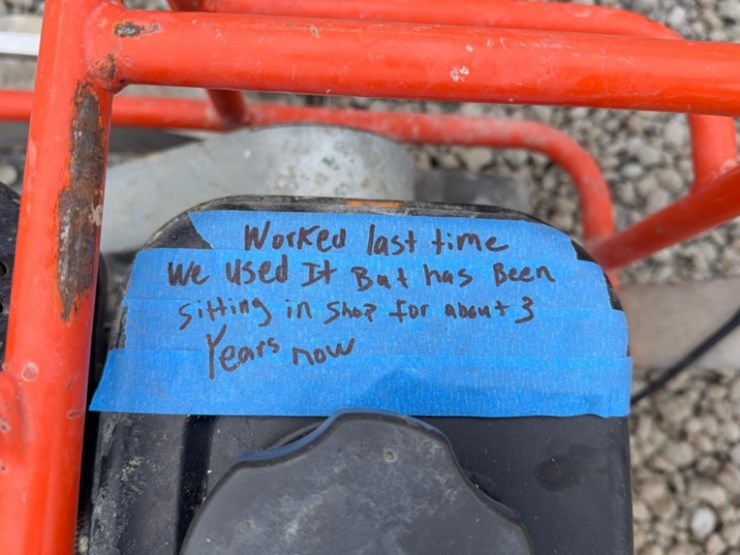 Worked last time
We Used It But has Been
Sitting in Shop for about 3
Years now